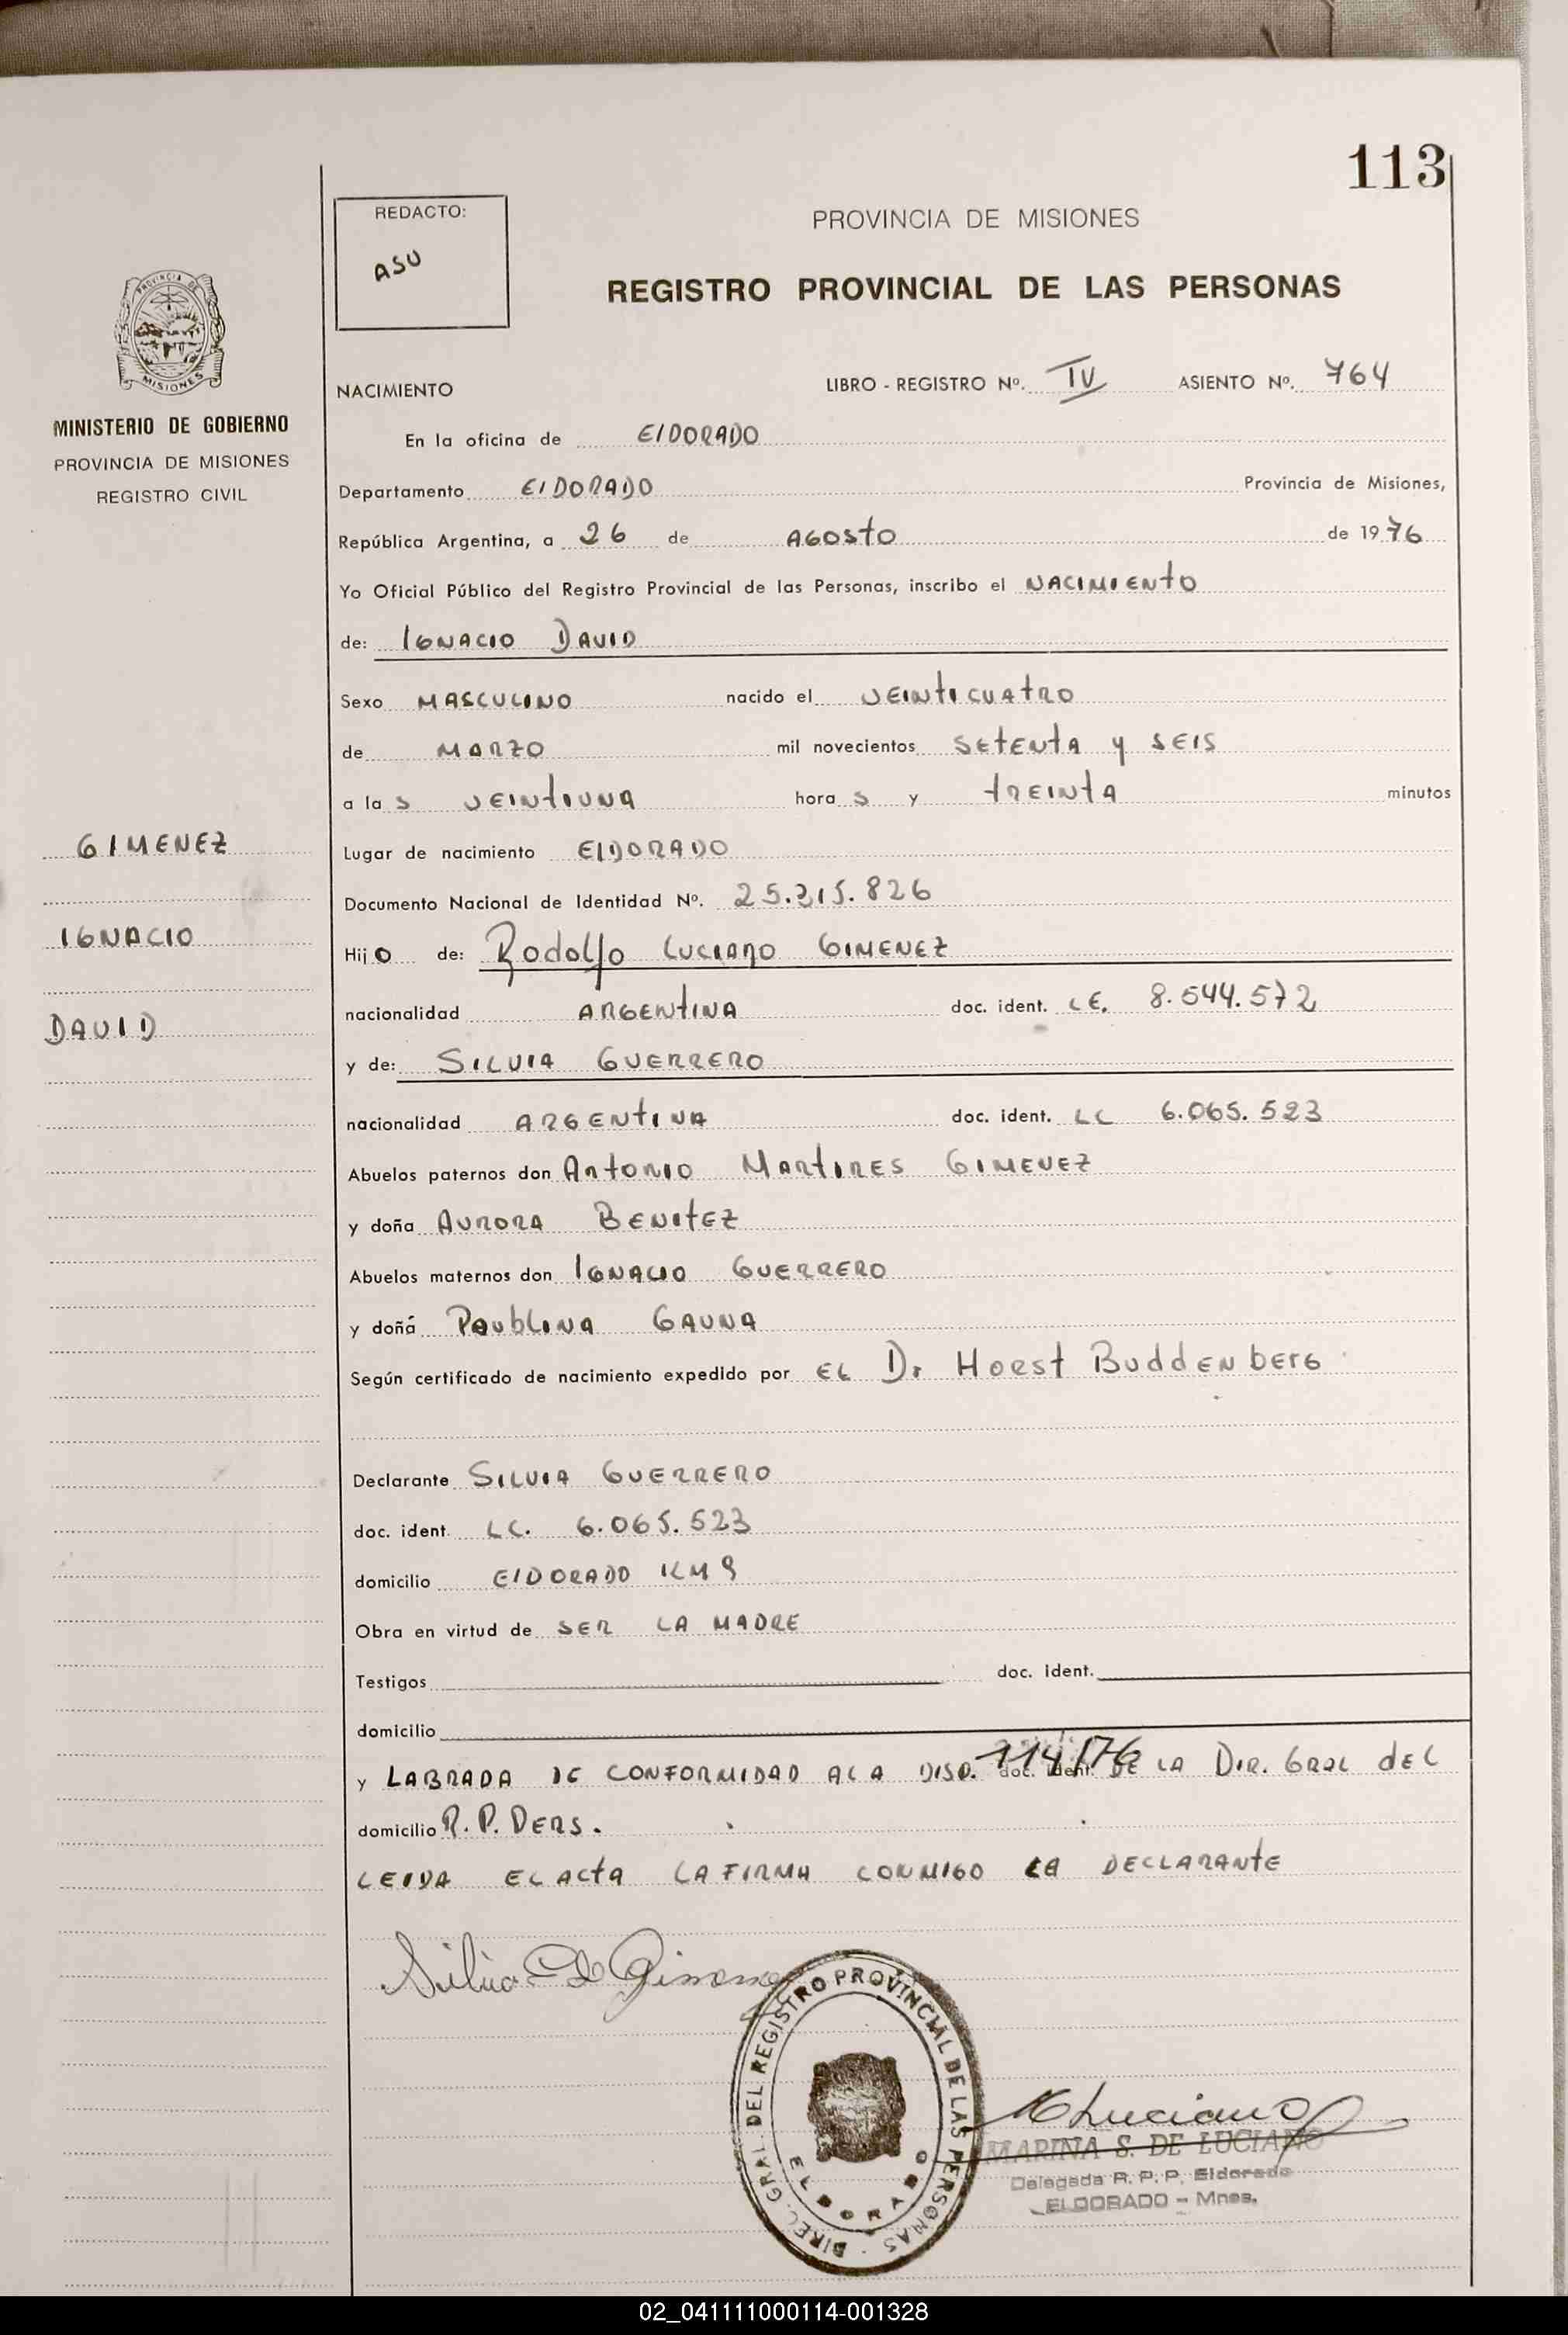 113
REDACTO:
ASU
PROVINCIA DE MISIONES
REGISTRO PROVINCIAL DE LAS PERSONAS
PROVINCIA DE
MISIONES
MINISTERIO DE GOBIERNO
PROVINCIA DE MISIONES
REGISTRO CIVIL
NACIMIENTO LIBRO - REGISTRO Nº. IV ASIENTO Nº. 764
En la oficina de ElDORADO
Departamento ElDORADO Provincia de Misiones,
República Argentina, a 26 de AGOSTO de 1976
Yo Oficial Público del Registro Provincial de las Personas, inscribo el NACIMIENTO
de: IGNACIO DAVID
Sexo MASCULINO nacido el VEINTICUATRO
de MARZO mil novecientos SETENTA y SEIS
a las VEINTIUNA horas y TREINTA minutos
GIMENEZ
IGNACIO
DAVID
Lugar de nacimiento ElDORADO
Documento Nacional de Identidad Nº. 25.215.826
Hijo de: Rodolfo LUCIANO GIMENEZ
nacionalidad ARGENTINA doc. ident. LE. 8.544.572
y de: SILVIA GUERRERO
nacionalidad ARGENTINA doc. ident. LC 6.065.523
Abuelos paternos don Antonio MARTIRES GIMENEZ
y doña AURORA BENITEZ
Abuelos maternos don IGNACIO GUERRERO
y doña PAUBLINA GAUNA
Según certificado de nacimiento expedido por EL Dr HORST BUDDENBERG
Declarante SILVIA GUERRERO
doc. ident. LC. 6.065.523
domicilio ElDORADO KM 9
Obra en virtud de SER LA MADRE
Testigos doc. ident.
domicilio
y LABRADA DE CONFORMIDAD A LA DISP. 114/76 doc. ident. DE LA DIR. GRAL DEL
domicilio R. P. PERS.
LEIDA EL ACTA LA FIRMA CONMIGO LA DECLARANTE
Silvia G de Gimenez
DIREC. GRAL. DEL REGISTRO PROVINCIAL DE LAS PERSONAS
ELDORADO
MLuciano
MARINA S. DE LUCIANO
Delegada R. P. P. Eldorado
ELDORADO - Mnes.
02_041111000114-001328